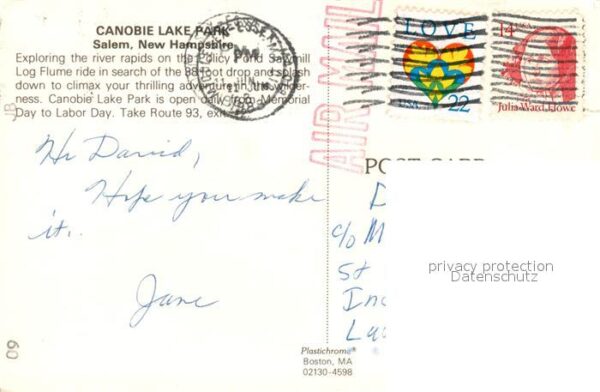 CANOBIE LAKE PARK
Salem, New Hampshire
Exploring the river rapids on the Policy Pond Sawmill
Log Flume ride in search of the 88 foot drop and splash
down to climax your thrilling adventure in the wilder-
ness. Canobie Lake Park is open daily from Memorial
Day to Labor Day. Take Route 93, exit
JB
Hi David,
Hope you make
it.
Jane
09
Plastichrome®
Boston, MA
02130-4598
AIR MAIL
LOVE
USA 22
14
Julia Ward Howe
PM
POST CARD
D
c/o M
St
In
La
privacy protection
Datenschutz